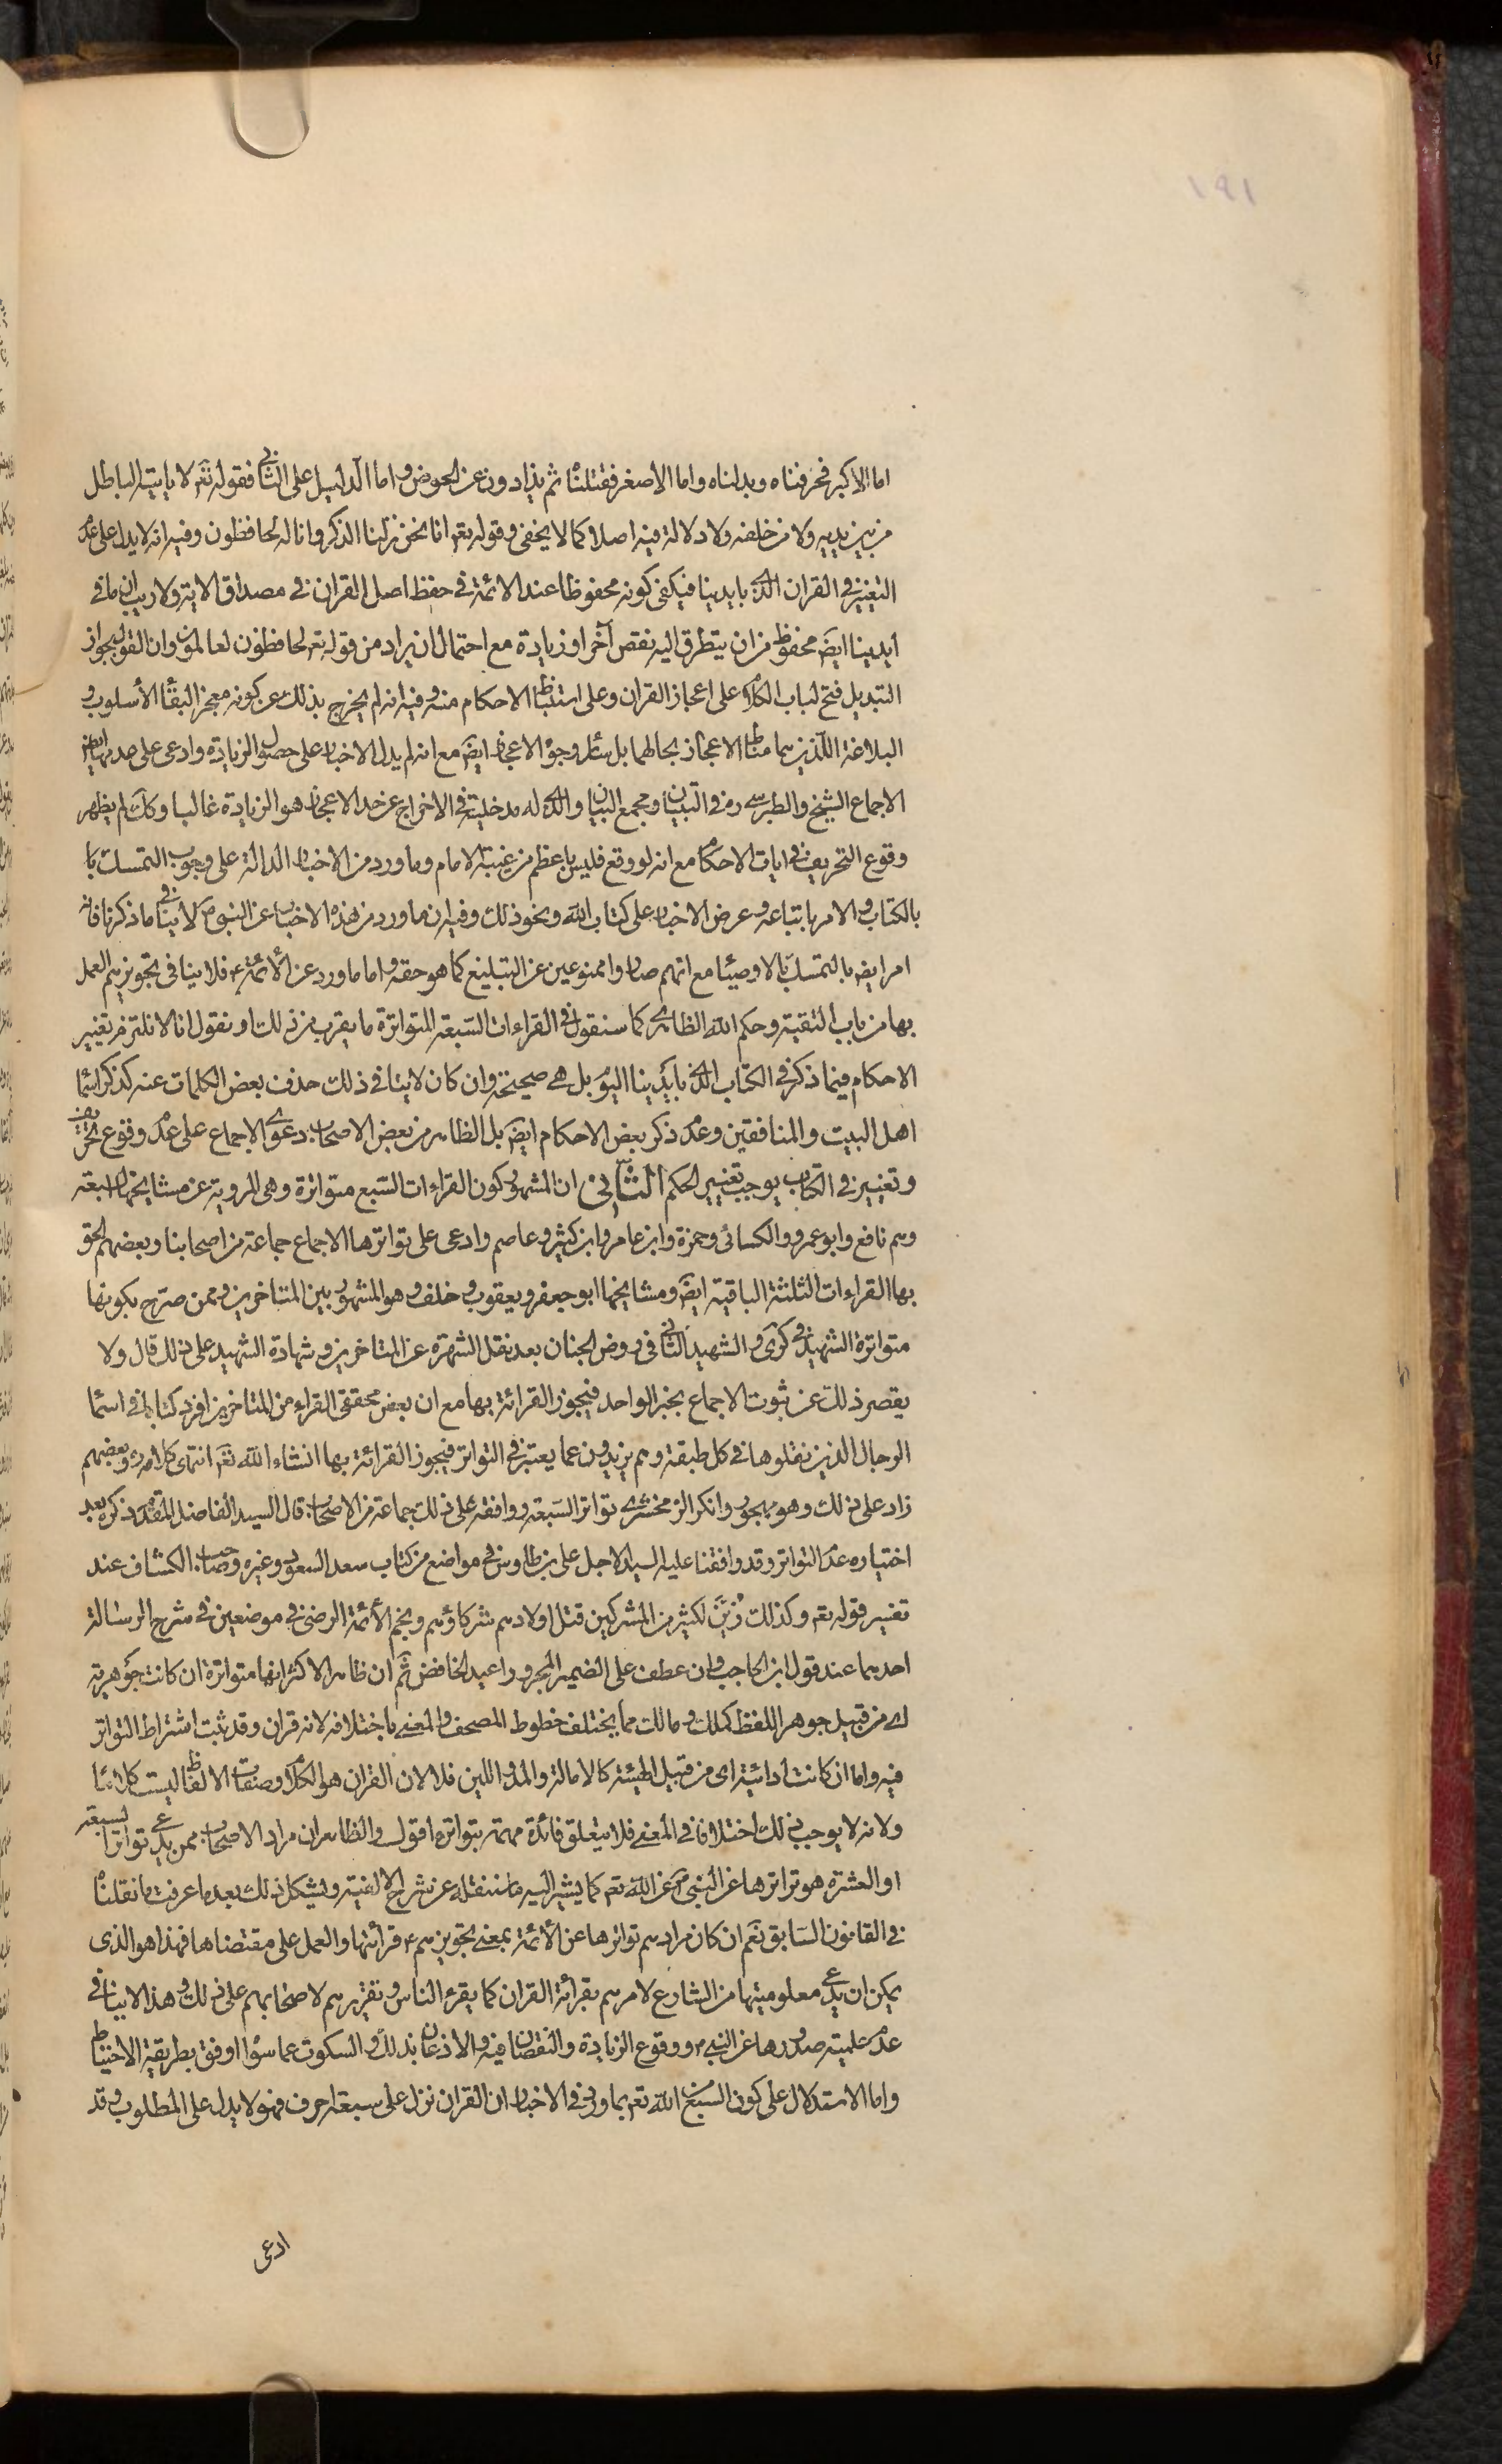 ١٩١
اما الاكبر فحرفناه وبدلناه واما الاصغر فقتلناه ثم يذادون عن الحوض واما الدليل على الثاني فقوله تعم لا ياتيه الباطل
من بين يديه ولا من خلفه ولا دلالة فيه اصلا كما لا يخفى وقوله تعم انا نحن نزلنا الذكر وانا له لحافظون وفيه انه لا يدل على عدم
التغيير في القران الذي بايدينا فيكفي كونه محفوظا عند الائمة في حفظ اصل القران في مصداق الاية ولا ريب ان ما في
ايدينا ايض محفوظ من ان يتطرق اليه نقص آخر او زيادة مع احتمال ان يراد من قوله تعم لحافظون لعالمون وان القول بجواز
التبديل فتح لباب الكلام على اعجاز القران وعلى استنباط الاحكام منه وفيه انه لم يخرج بذلك عن كونه معجز البقاء الأسلوب و
البلاغة اللذين هما مناط الاعجاز بحالهما بل سائر وجوه الاعجاز ايض مع انه لم يدل الاخبار على حصول الزيادة وادعى على عدمها ايض
الاجماع الشيخ والطبرسي ره في التبيان ومجمع البيان والذي له مدخلية في الاخراج عن حد الاعجاز هو الزيادة غالبا وكك لم يظهر
وقوع التحريف في ايات الاحكام مع انه لو وقع فليس باعظم من غيبة الامام وما ورد من الاخبار الدالة على وجوب التمسك با
بالكتاب والامر باتباعه وعرض الاخبار على كتاب الله ونحو ذلك وفيه ان ما ورد من هذه الاخبار عن النبي ص لا ينافي ما ذكرنا فانه
امر ايض بالتمسك بالاوصياء مع انهم صاروا ممنوعين عن التبليغ كما هو حقه واما ما ورد عن الأئمة ع فلا ينافي تجويزهم العمل
بها من باب التقية وحكم الله الظاهري كما سنقول في القراءات السبعة المتواترة ما يقرب من ذلك او نقول انا لا نلتزم تغيير
الاحكام فيما ذكر في الكتاب الذي بايدينا اليوم بل هي صحيحة وان كان لا ينافي ذلك حذف بعض الكلمات عنه كذكر اسماء
اهل البيت والمنافقين وعدم ذكر بعض الاحكام ايض بل الظاهر من بعض الاصحاب دعوى الاجماع على عدم وقوع تحريف
وتغيير في الكتاب يوجب تغيير الحكم الثاني ان المشهور كون القراءات السبع متواترة وهي المروية عن مشايخها السبعة
وهم نافع وابو عمرو والكسائي وحمزة وابن عامر وابن كثير وعاصم وادعى على تواترها الاجماع جماعة من اصحابنا وبعضهم الحق
بها القراءات الثلثة الباقية ايض ومشايخها ابو جعفر ويعقوب وخلف وهو المشهور بين المتاخرين وممن صرح بكونها
متواترة الشهيد في كرى والشهيد الثاني في روض الجنان بعد نقل الشهرة عن المتاخرين وشهادة الشهيد على ذلك قال ولا
يقصر ذلك عن ثبوت الاجماع بخبر الواحد فيجوز القرائة بها مع ان بعض محققي القراء من المتاخرين افرد كتابا في اسماء
الرجال الذين نقلوها في كل طبقة وهم يزيدون عما يعتبر في التواتر فيجوز القرائة بها انشاء الله تعم انتهى كلامه ره وبعضهم
زاد على ذلك وهو مهجور وانكر الزمخشري تواتر السبعة ووافقه على ذلك جماعة من الاصحاب قال السيد الفاضل المتقدم ذكره بعد
اختياره عدم التواتر وقد وافقنا عليه السيد الاجل علي بن طاوس في مواضع من كتاب سعد السعود وغيره وصاحب الكشاف عند
تفسير قوله تعم وكذلك زُيّنَ لكثير من المشركين قتل اولادهم شركاؤهم ونجم الأئمة الرضي في موضعين في شرح الرسالة
احدهما عند قول ابن الحاجب وان عطف على الضمير المجرور اعيد الخافض ثم ان ظاهر الاكثر انها متواترة ان كانت جوهرية
اي من قبيل جوهر اللفظ كملك ومالك مما يختلف خطوط المصحف والمعنى باختلافه لانه قران وقد ثبت اشتراط التواتر
فيه واما ان كانت ادائية اي من قبيل الهيئة كالامالة والمد واللين فلا لان القران هو الكلام وصفات الالفاظ ليست كلاما
ولانه لا يوجب ذلك اختلافا في المعنى فلا يتعلق فائدة مهمة بتواتره اقول والظاهر ان مراد الاصحاب ممن يدعي تواتر السبعة
او العشرة هو تواترها عن النبي ص عن الله تعم كما يشير اليه ما سننقله عن شرح الالفية ويشكل ذلك بعد ما عرفت ما نقلناه
في القانون السابق نعم ان كان مرادهم تواترها عن الأئمة بمعنى تجويزهم ع قرائتها والعمل على مقتضاها فهذا هو الذي
يمكن ان يدعي معلوميتها من الشارع لامرهم بقرائة القران كما يقرء الناس وتقريرهم لاصحابهم على ذلك وهذا لا ينافي
عدم علمية صدورها عن النبي ص ووقوع الزيادة والنقصان فيه والاذعان بذلك والسكوت عما سواه اوفق بطريقة الاحتياط
واما الاستدلال على كون السبع من الله تعم بما ورد في الاخبار ان القران نزل على سبعة احرف فهو لا يدل على المطلوب وقد
ادعى